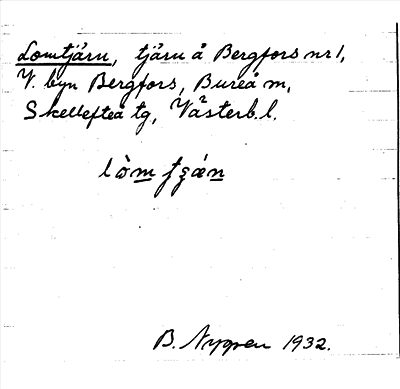 Lomtjärn, tjärn å Bergfors nr 1,
V. byn Bergfors, Bureå m,
Skellefteå tg, Västerb. l.
B. Nygren 1932.